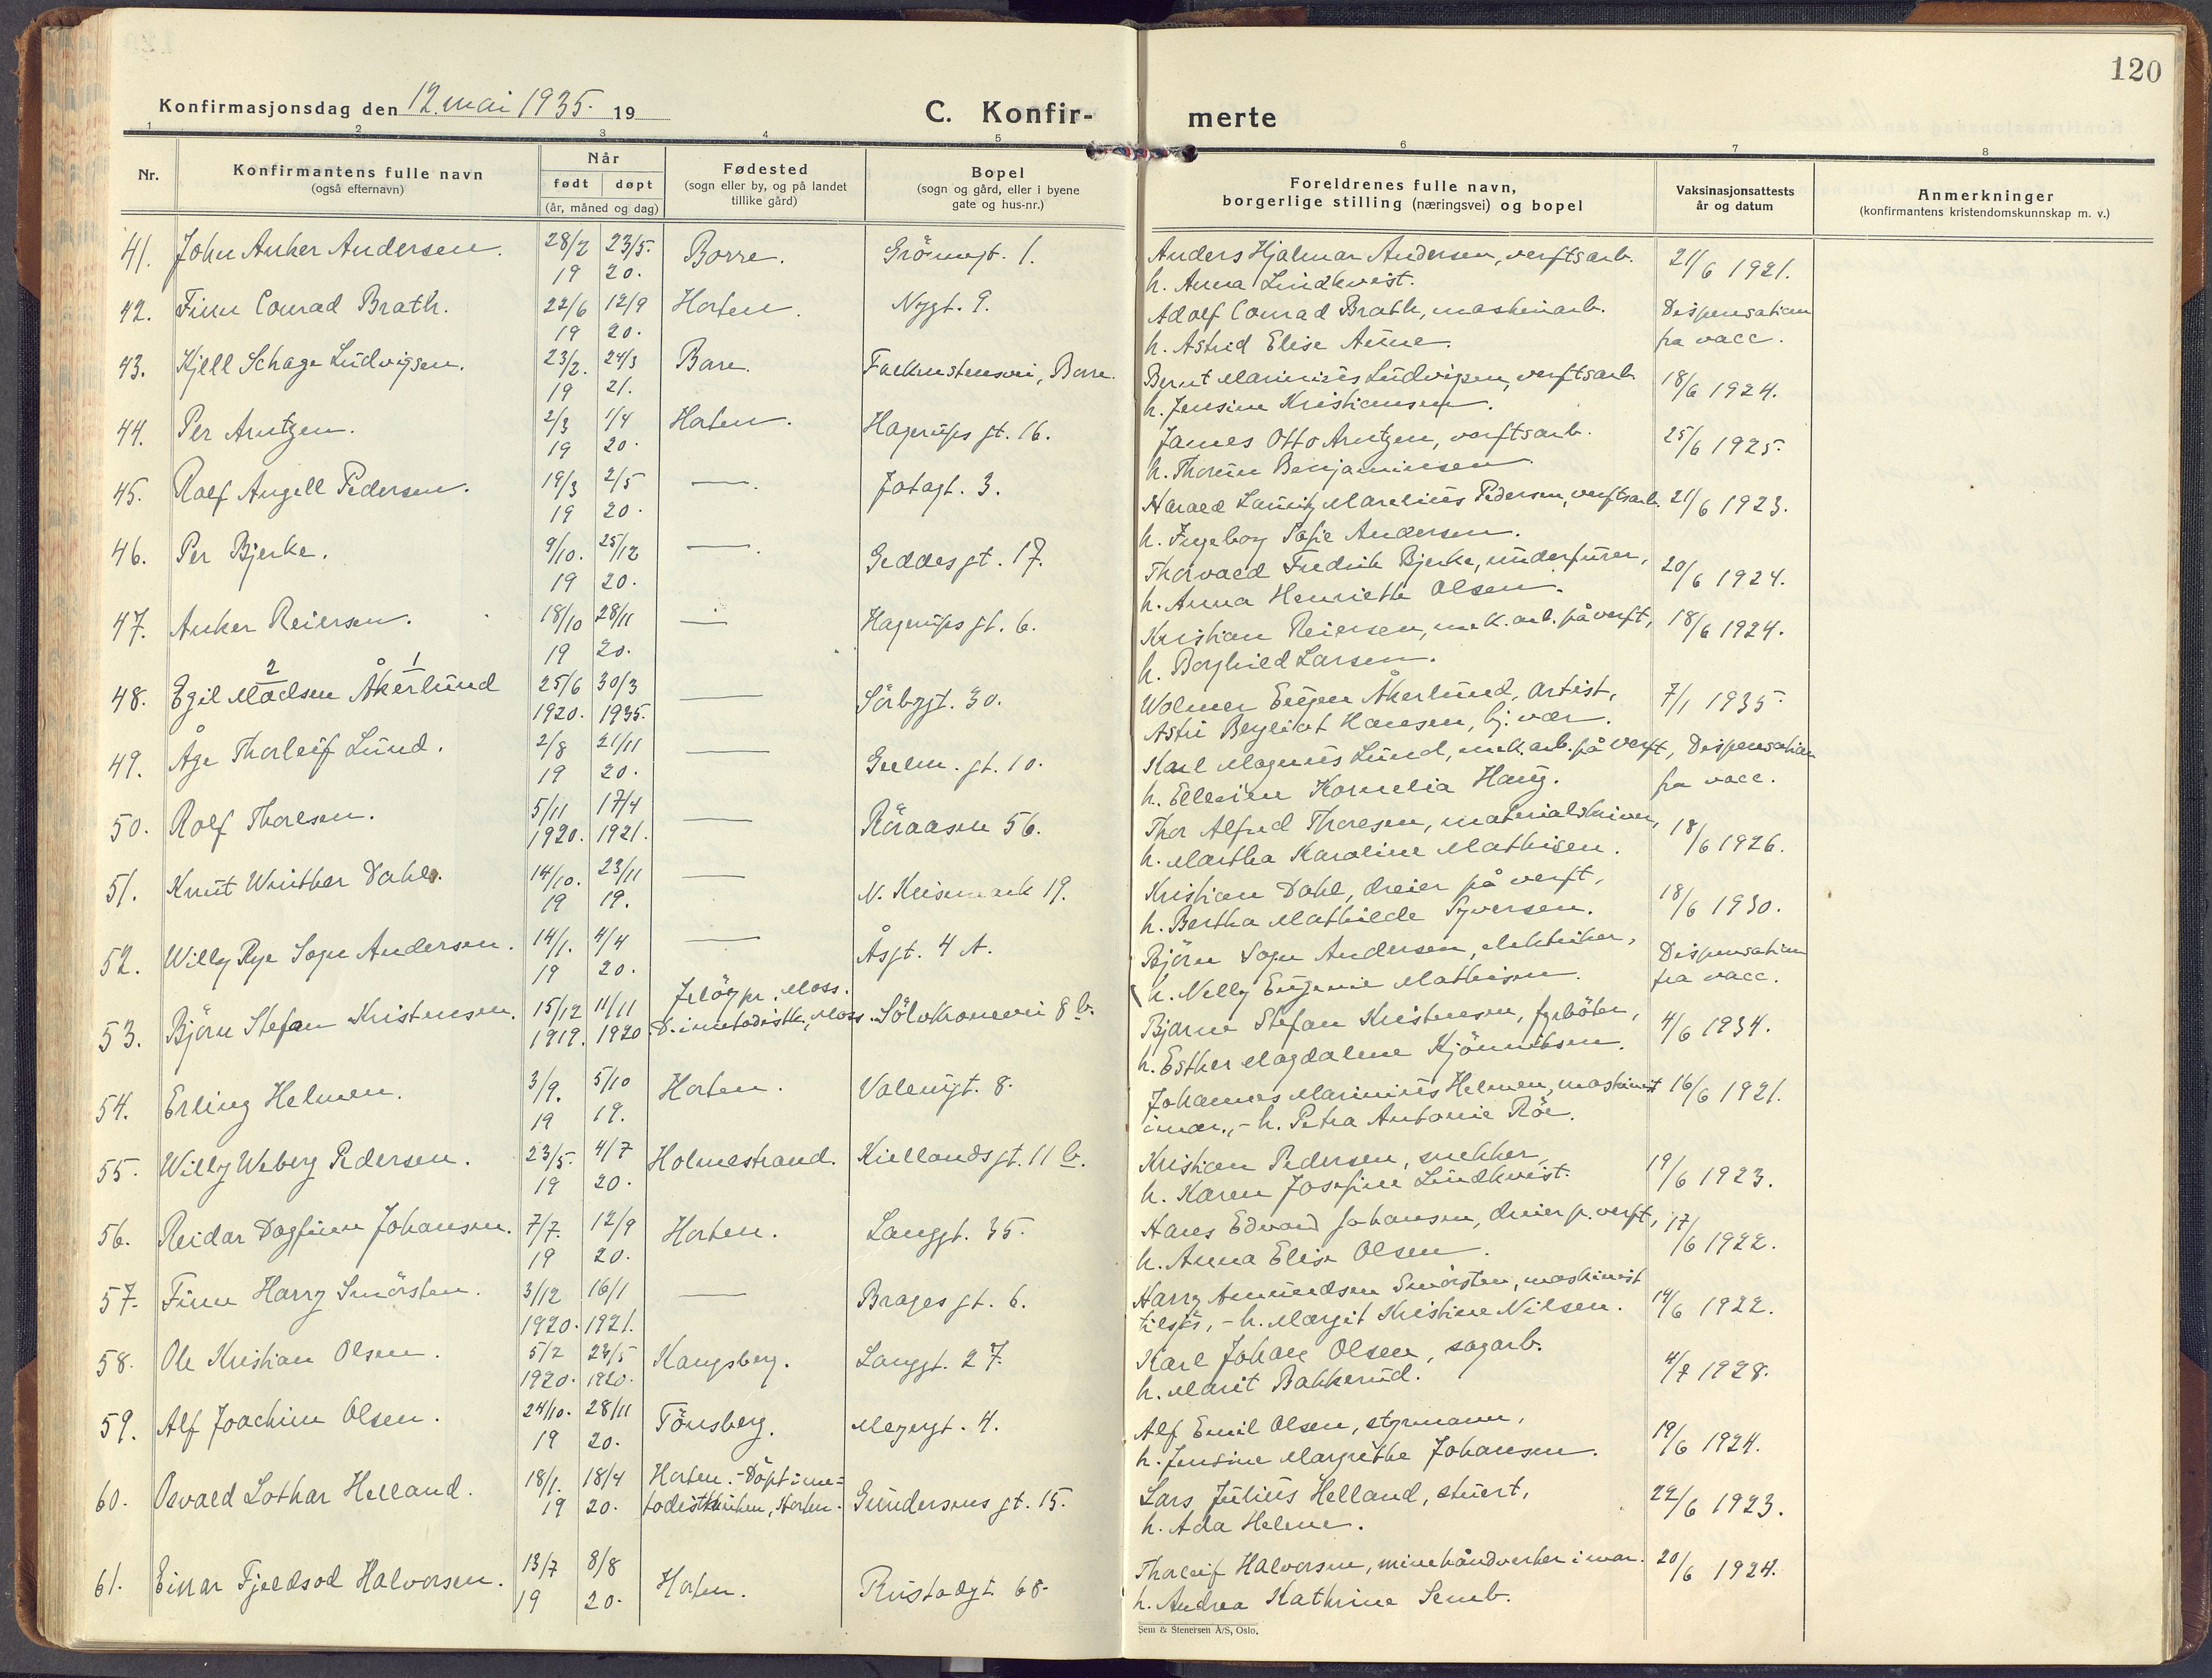 120
Konfirmasjonsdag den 12. mai 1935. 19
C. Konfir-
merte
1 2 3 4 5 6 7 8
Nr.
Konfirmantens fulle navn
(også efternavn)
Når
født døpt
(år, måned og dag)
Fødested
(sogn eller by, og på landet
tillike gård)
Bopel
(sogn og gård, eller i byene
gate og hus-nr.)
Foreldrenes fulle navn,
borgerlige stilling (næringsvei) og bopel
Vaksinasjonsattests
år og datum
Anmerkninger
(konfirmantens kristendomskunnskap m. v.)
41. John Anker Andersen. 28/2 23/5. Borre. Grönngt. 1. Anders Hjalmar Andersen, verftsarb. 21/6 1921.
19 20. h. Anna Lindkvist.
42. Finn Conrad Brath. 22/6 12/9 Horten. Nygt. 9. Adolf Conrad Brath, maskinarb. Dispensation
19 20. h. Astrid Elise Aune. fra vacc.
43. Kjell Schage Ludvigsen. 23/2. 24/3 Borre. Falkenstensvei, Borre. Bernt Marinius Ludvigsen, verftsarb. 18/6 1924.
19 21. h. Jensine Kristiansen.
44. Per Arntzen. 2/3 1/4 Horten. Hagerups gt. 16. James Otto Arntzen, verftsarb. 25/6 1925.
19 20. h. Thorun Benjaminsen.
45. Rolf Angell Pedersen. 19/3 2/5 —. Jotagt. 3. Harald Lauritz Marelius Pedersen, verftsarb. 21/6 1923.
19 20. h. Ingeborg Sofie Andersen.
46. Per Bjerke. 9/10. 25/12 —. Geddes gt. 17. Thorvald Fredrik Bjerke, underfurer, 20/6 1924.
19 20. h. Anna Henriette Olsen.
47. Anker Reiersen. 18/10 28/11 — Hagerups gt. 6. Kristian Reiersen, mek. arb. på verft, 18/6 1924.
19 20. h. Borghild Larsen.
2 1
48. Egil Madsen Åkerlund 25/6 30/3 — Sörbygt. 30. Wolmer Eugen Åkerlund, artist, 7/1 1935.
1920. 1935. Astri Bergliot Hansen,
49. Åge Thorleif Lund. 2/8 21/11 — Gulm. gt. 10. Karl Magnus Lund, mek. arb. på verft, Dispensation
19 20. h. Ellevine Kornelia Haug. fra vacc.
50. Rolf Thoresen. 5/11 17/4 — Röraasen 56. Thor Alfred Thoresen, materialskriver, 18/6 1926.
1920. 1921. h. Martha Karoline Mathisen.
51. Knut Winther Dahl. 14/10. 23/11 — N. Keisemark 19. Kristian Dahl, dreier på verft, 18/6 1930.
19 19. h. Bertha Mathilde Syversen.
52. Willy Rye Sogn Andersen. 14/1. 4/4 — Åsgt. 4 A. Björn Sogn Andersen, elektriker, Dispensation
19 20. h. Nelly Eugenie Mathisen. fra vacc.
53. Björn Stefan Kristensen. 15/12 11/11 Jelöy pr. Moss. Sölvkronevei 8 b. Bjarne Stefan Kristensen, fyrböter, 4/6 1934.
1919. 1920 D. i metodistk., Moss. h. Esther Magdalene Kjönniksen.
54. Erling Helmen. 3/9. 5/10 Horten. Valeurgt. 8. Johannes Marinius Helmen, maskinist 16/6 1921.
19 19. i mar., - h. Petra Antonie Röe.
55. Willy Weberg Pedersen. 23/5. 4/7 Holmestrand. Kiellands gt. 11 b. Kristian Pedersen, snekker, 19/6 1923.
19 20. h. Karen Josefine Lindkvist.
56. Reidar Dagfinn Johansen. 7/7. 12/9 Horten. Langgt. 35. Hans Edvard Johansen, dreier p. verft, 17/6 1922.
19 20. h. Anna Elise Olsen.
57. Finn Harry Smörsten. 3/12 16/1 — Brages gt. 6. Harry Amundsen Smörsten, maskinist 14/6 1922.
1920. 1921. tilsjös, - h. Margit Kristine Nilsen.
58. Ole Kristian Olsen. 5/2 23/5 Kongsberg. Langgt. 27. Karl Johan Olsen, sagarb. 4/7 1928.
1920. 1920. h. Marit Bakkerud.
59. Alf Joachim Olsen. 24/10. 28/11 Tönsberg. Meyergt. 4. Alf Emil Olsen, styrmann, 19/6 1924.
19 20. h. Jensine Margrethe Johansen.
60. Osvald Lothar Helland. 18/1. 18/4 Horten. - Döpt i me= Gundersens gt. 15. Lars Julius Helland, stuert, 22/6 1923.
19 20. todistkirken, Horten. h. Ada Helene.
61. Einar Fjeldsod Halvorsen. 13/7 8/8 Horten. Rustadgt 68. Thorleif Halvorsen, minehåndverker i mar. 20/6 1924.
19 20. h. Andrea Kathrine Semb.
Sem & Stenersen A/S, Oslo.